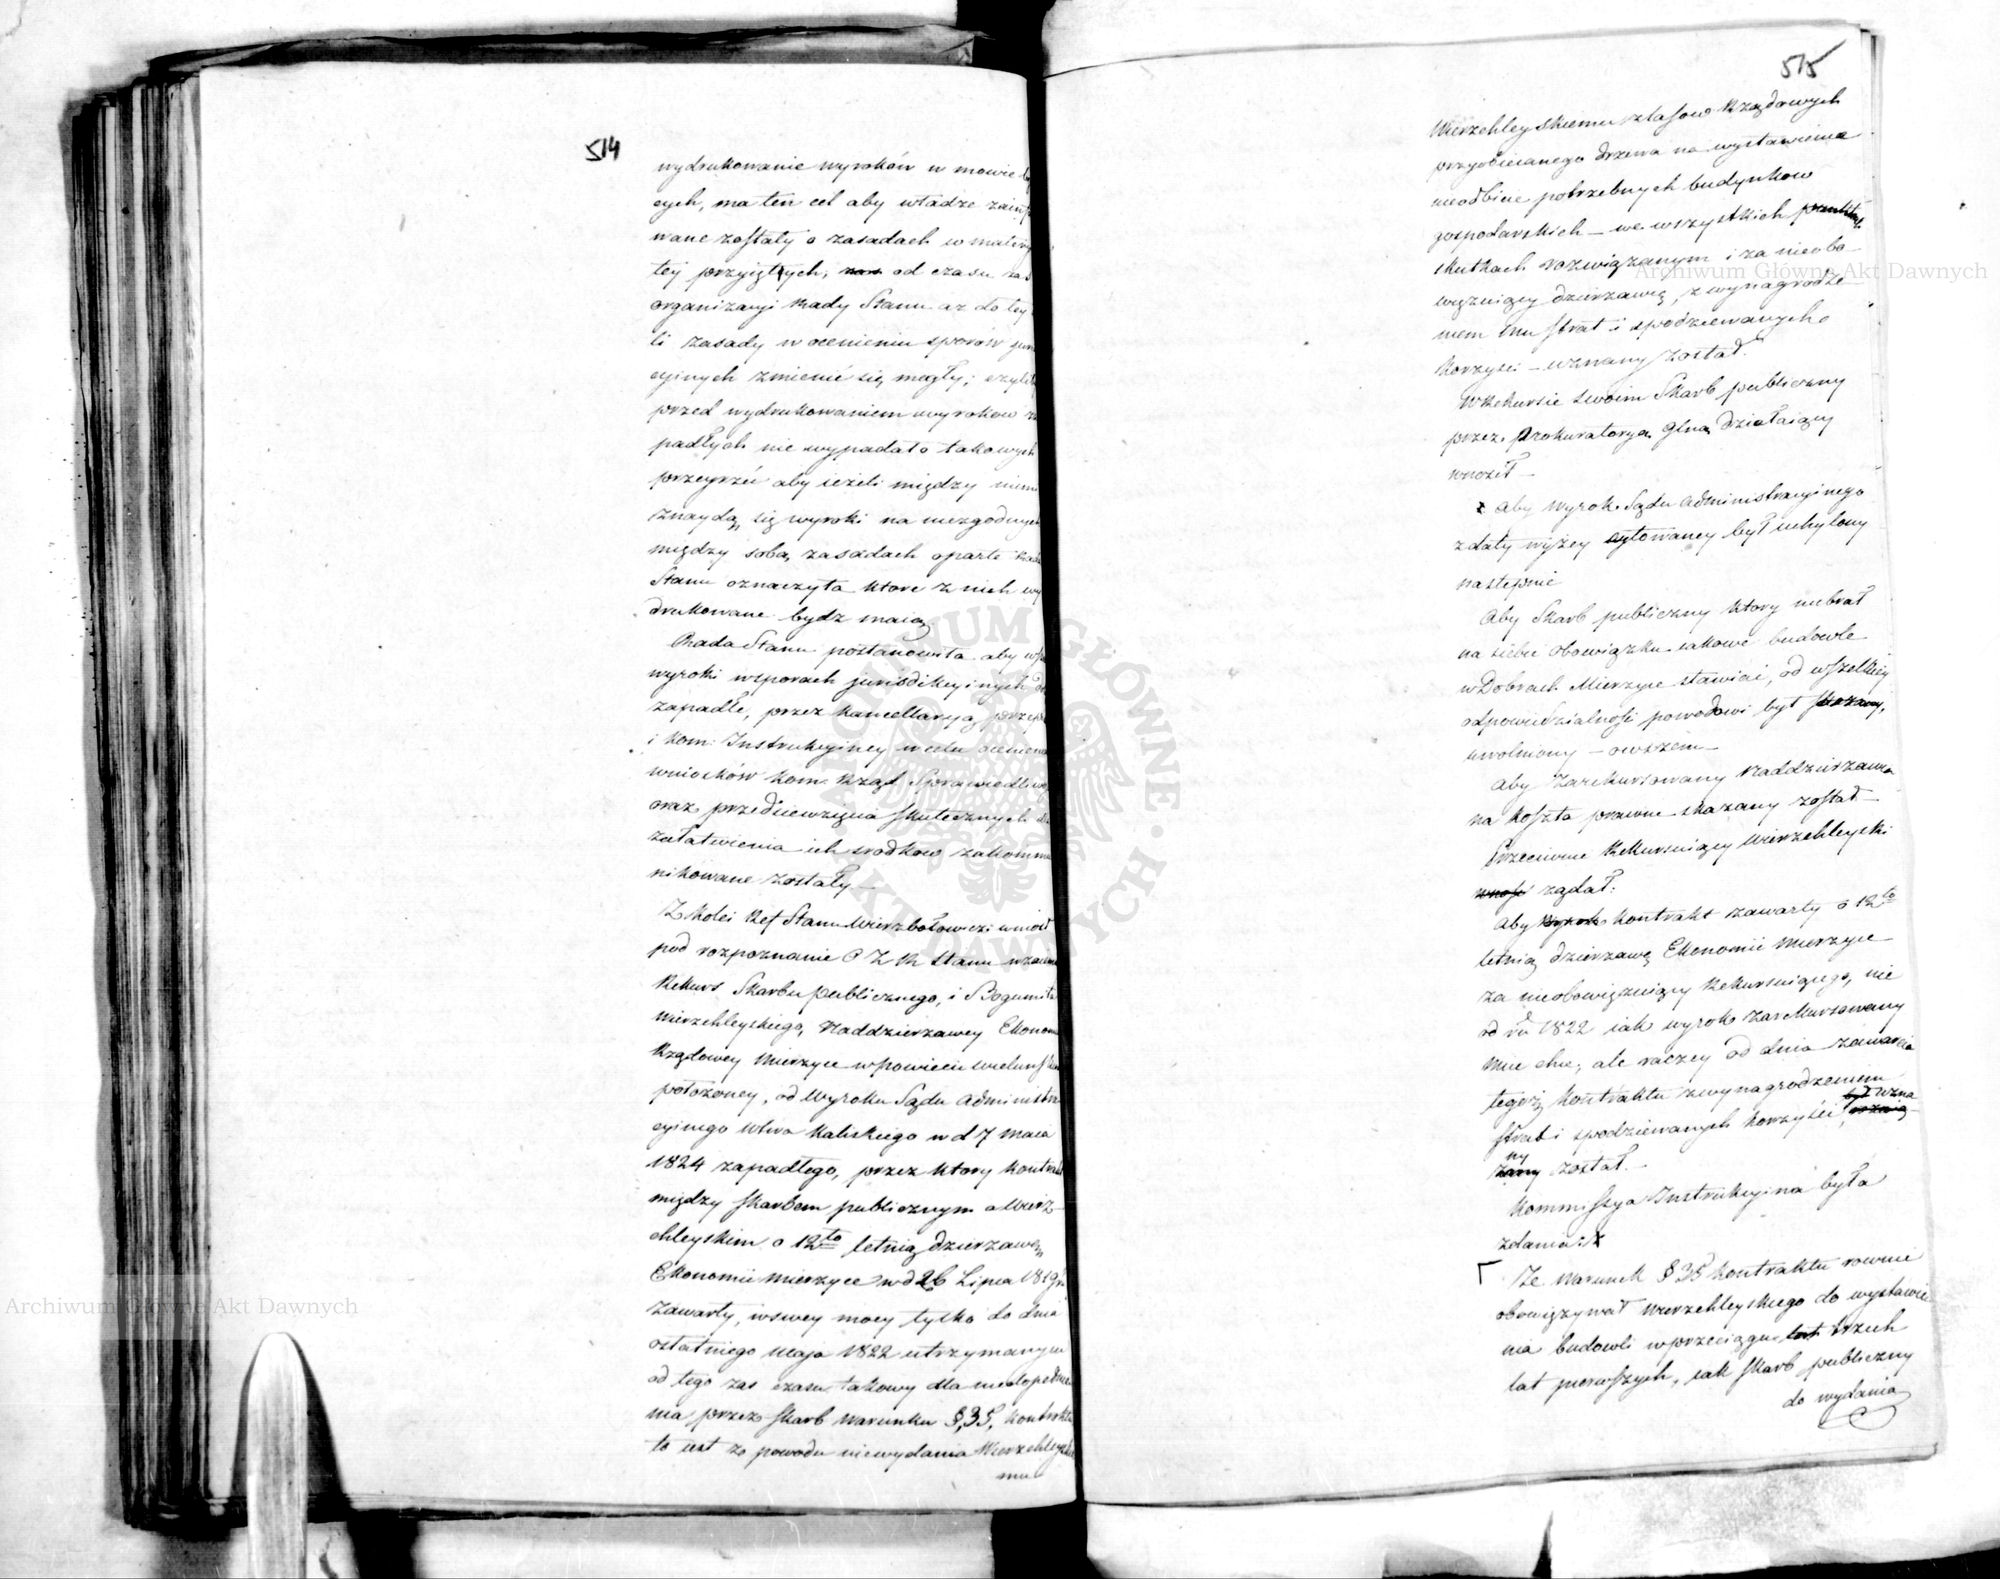 514
wydrukowanie wyroków w mowie bę
cych, ma ten cel aby władze zainfo
wane zostały o zasadach w materyi
tey przyiętych; od czasu zaś
organizacyi Rady Stanu aż do tey
li zasady w ocenieniu sporów juris
cyinych zmienić się mogły; czyli
przed wydrukowaniem wyrokow za
padłych nie wypadało takowych
przeyrzeć aby ieżeli między niemi
znaydą się wyroki na niezgodnych
między sobą zasadach oparte Rada
Stanu oznaczyła ktore z nich wy
drukowane bydz maią
Rada Stanu postanowiła aby wsz
wyroki wsporach jurisdikcyinych
zapadłe, przez Kancellaryą przep
i Kom: Instrukcyiney w celu ocenienia
wniosków Kom. Rząd. Sprawiedliwo
oraz przedsiewzięcia skutecznych dla
załatwienia ich srodkow zakommu
nikowane zostały —
Z kolei Ref Stanu Wierzbołowicz wniósł
pod rozpoznanie O Z R Stanu wzaiem
Rekurs Skarbu publicznego, i Bogumiła
Wierzchleyskiego, Naddzierzawcy Ekonom
Rządowey Mierzyce w powiecie Wieluńskim
położoney, od Wyroku Sądu Administra
cyinego Wtwa Kaliskiego w d 7 Maia
1824 zapadłego, przez ktory kontrakt
między Skarbem publicznym a Wierz
chleyskim o 12to letnią dzierzawę
Ekonomii Mierzyce w d 26 Lipca 1819 r
zawarty, w swey mocy tylko do dnia
ostatniego Maja 1822 utrzymanym
od tego zas czasu takowy dla niedopełnie
nia przez Skarb warunku § 35, kontraktu
to iest z powodu niewydania Wierzchleyskie
mu
515
Wierzchleyskiemu zlasow Rządowych
przyobiecanego drzewa na wystawienie
nieodbicie potrzebnych budynkow
gospodarskich — we wszystkich
skutkach rozwiązanym i za nieobo
wiązuiący dzierzawcę, z wynagrodze
niem mu strat i spodziewanych
korzyści — uznany został.
W Rekursie swoim Skarb publiczny
przez Prokuratoryą Glną działaiący
wnosił —
aby wyrok Sądu Administracyinego
z daty wyżey cytowaney był uchylony
następnie
Aby Skarb publiczny ktory niebrał
na siebie obowiązku iakowe budowle
w Dobrach Mierzyce stawiać, od wszelkiey
odpowiedzialności powodowi był
uwolniony — owszem —
aby Zarekursowany Naddzierzawca
na koszta prawne skazany został —
Przeciwnie Rekursuiący Wierzchleyski
żądał:
Aby kontrakt zawarty o 12to
letnią dzierzawę Ekonomii Mierzyce
za nieobowiązuiący Rekursuiącego, nie
od ru 1822 iak wyrok zarekursowany
mieć chce, ale raczey od dnia zawarcia
tegoż kontraktu z wynagrodzeniem
strat i spodziewanych korzyści, uzna
ny został. —
Kommissya Instrukcyina była
zdania:
Ze warunek § 35 kontraktu rownie
obowiązywał Wierzchleyskiego do wystawie
nia budowli w przeciągu trzech
lat pierwszych, iak Skarb publiczny
do wydania
Archiwum Główne Akt Dawnych
Archiwum Główne Akt Dawnych
ARCHIWUM GŁÓWNE AKT DAWNYCH